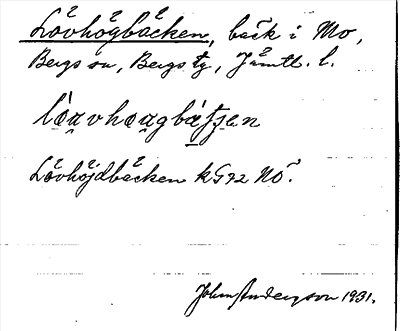 Lövhögbäcken, bäck i Mo,
Bergs sn, Bergs tg, Jämtl. l.
Lövhöjdbäcken kG72 NÖ.
John Andersson 1931.